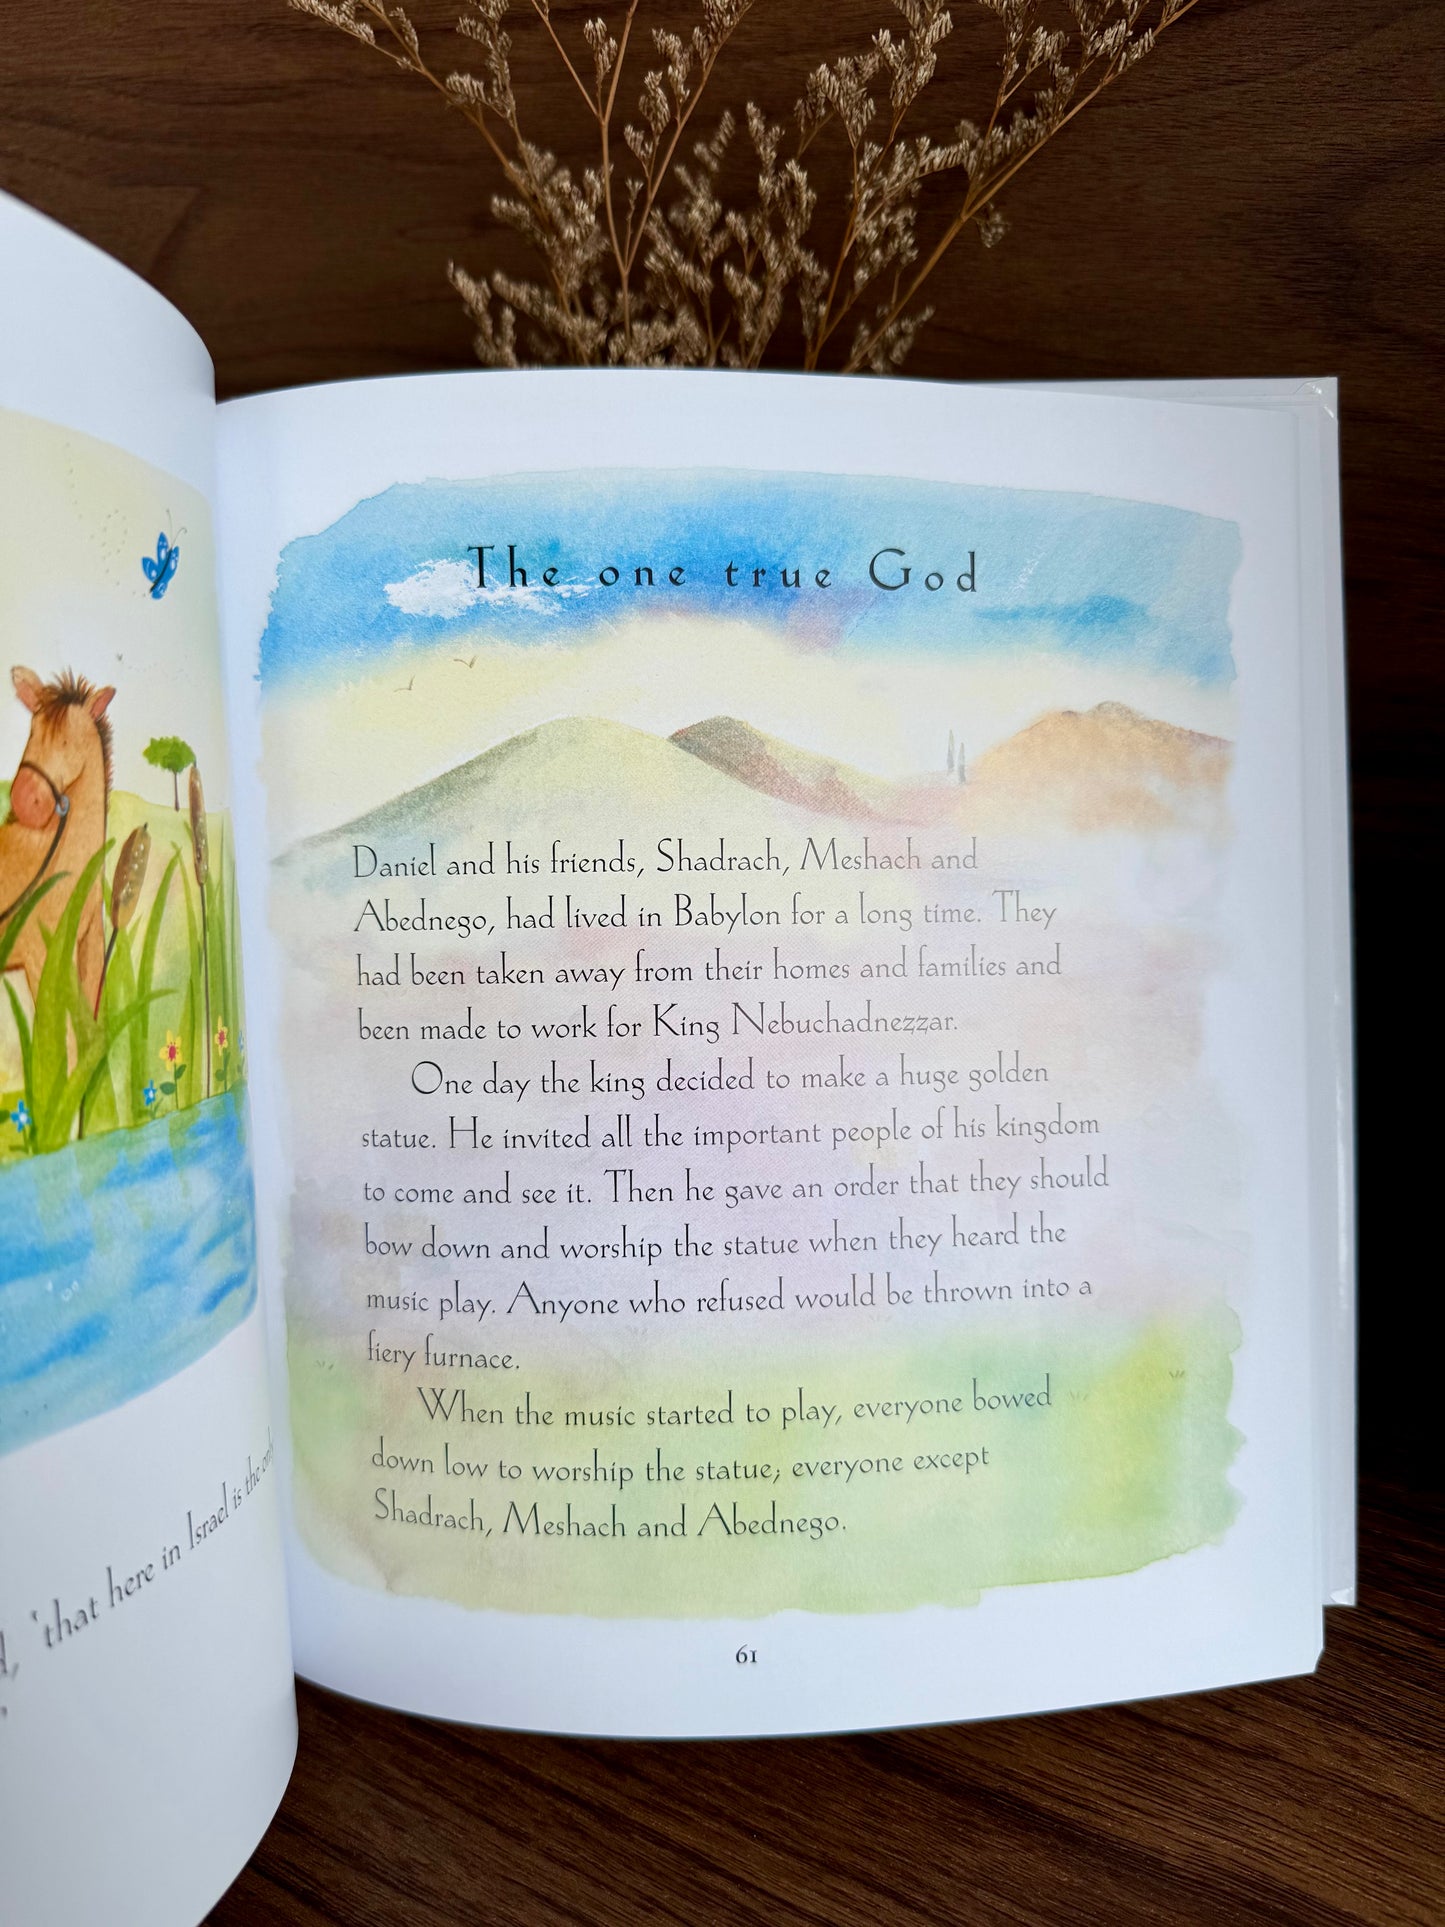 d, 'that here in Israel is the only
The one true God
Daniel and his friends, Shadrach, Meshach and
Abednego, had lived in Babylon for a long time. They
had been taken away from their homes and families and
been made to work for King Nebuchadnezzar.
One day the king decided to make a huge golden
statue. He invited all the important people of his kingdom
to come and see it. Then he gave an order that they should
bow down and worship the statue when they heard the
music play. Anyone who refused would be thrown into a
fiery furnace.
When the music started to play, everyone bowed
down low to worship the statue; everyone except
Shadrach, Meshach and Abednego.
61